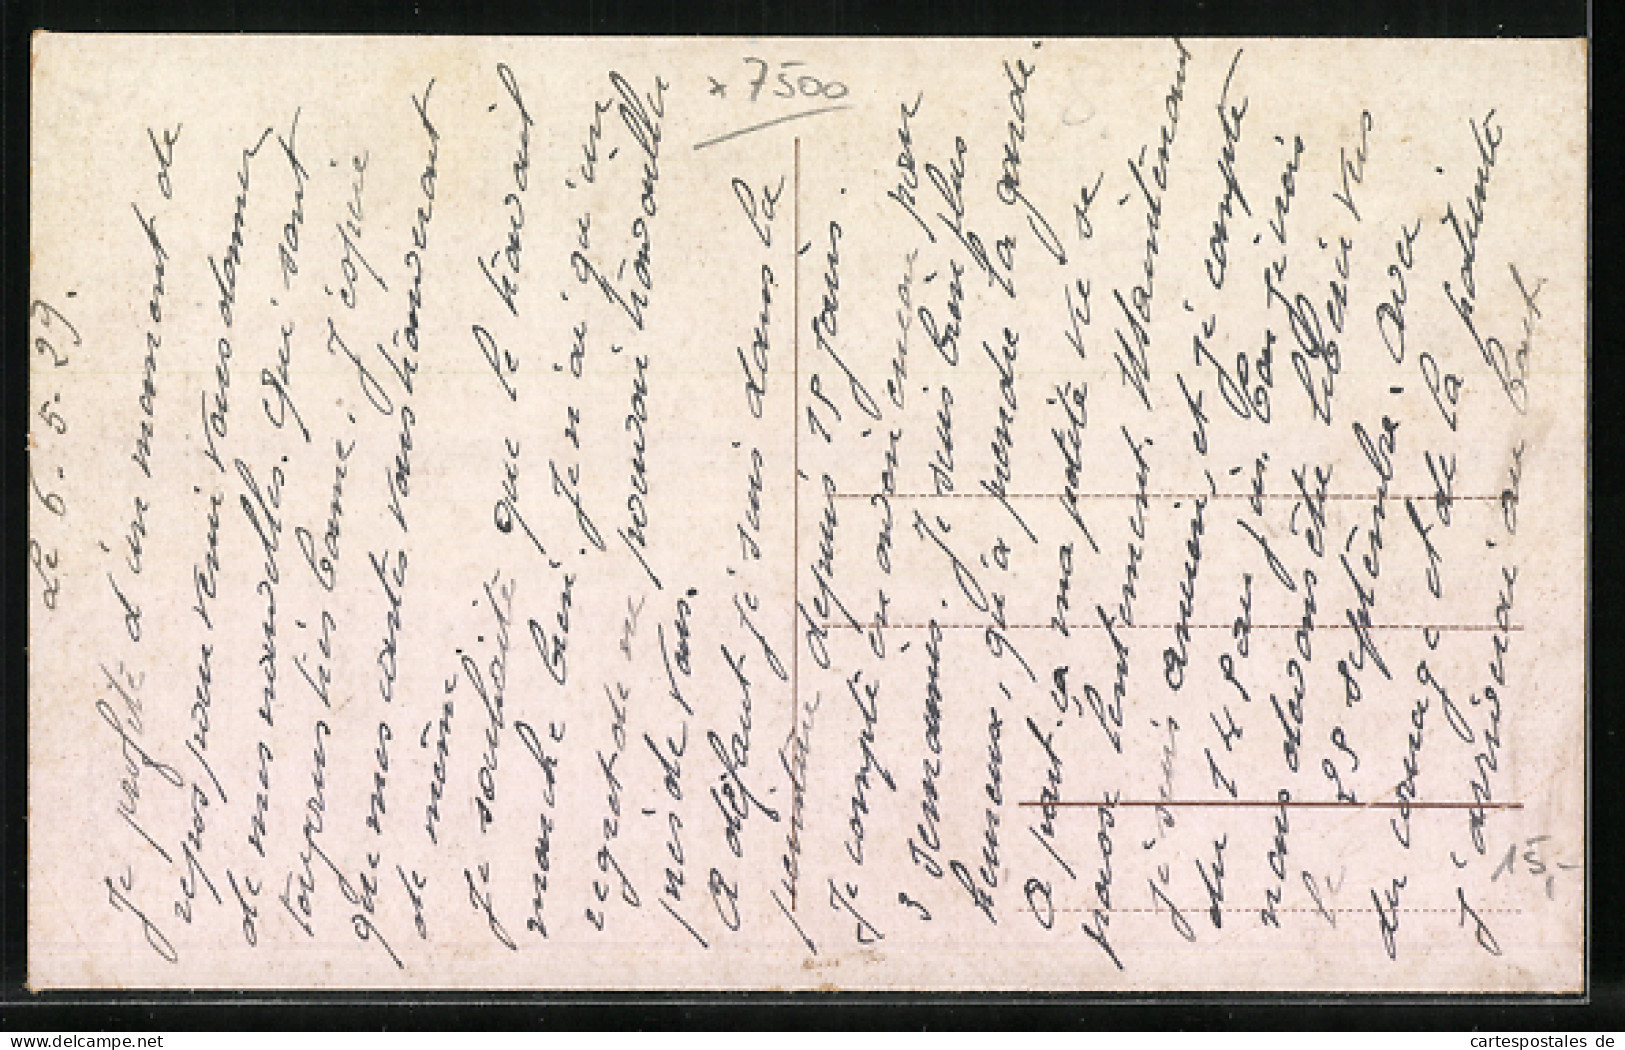 Le 6-5-29.
Je profite d'un moment de
repos pour venir vous donner
de mes nouvelles. qui sont
toujours très bonne. J'espere
que mes cartes vous trouveront
de même
Je souhaite que le travail
marche bien. Je n'ai qu'un
regret de ne pouvoir travailler
près de vous.
A défaut je suis dans la
peinture depuis 15 jours.
Je compte en avoir encore pour
3 semaines. Je suis bien plus
heureux, qu'a prendre la garde.
A part ça ma petite vie se
passe lentement. Maintenant
je suis ancien, et je compte
du 148 au jus. Car je crois
nous devons être libérer vers
le 25 septembre. Avec
du courage et de la patiente
J'arriverai au bout
* 7500
15,-
oldthing
cartespostales de